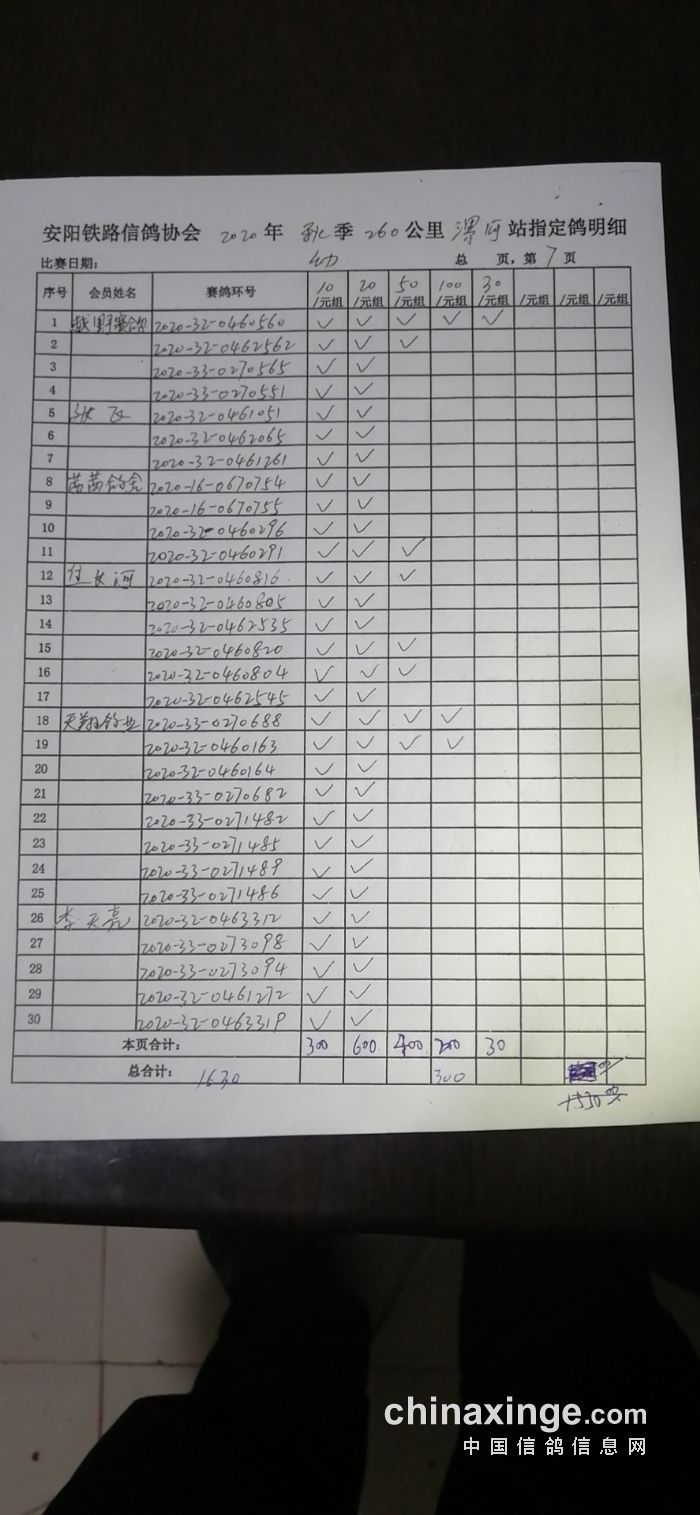 安阳铁路信鸽协会 2020年 秋季 260公里 漯河 站指定鸽明细
比赛日期: 幼 总 页，第7页
序号 会员姓名 赛鸽环号 10/元组 20/元组 50/元组 100/元组 30/元组 /元组 /元组 /元组
1 越野赛鸽 2020-32-0460560 ✓ ✓ ✓ ✓ ✓
2 2020-32-0462562 ✓ ✓ ✓
3 2020-33-0270565 ✓ ✓
4 2020-33-0270551 ✓ ✓
5 张飞 2020-32-0461051 ✓ ✓
6 2020-32-0462065 ✓ ✓
7 2020-32-0461261 ✓ ✓
8 茜茜鸽舍 2020-16-0670754 ✓ ✓
9 2020-16-0670755 ✓ ✓
10 2020-32-0460296 ✓ ✓
11 2020-32-0460291 ✓ ✓ ✓
12 任长河 2020-32-0460816 ✓ ✓ ✓
13 2020-32-0460805 ✓ ✓
14 2020-32-0462535 ✓ ✓
15 2020-32-0460820 ✓ ✓ ✓
16 2020-32-0460804 ✓ ✓ ✓
17 2020-32-0462545 ✓ ✓
18 天翔鸽业 2020-33-0270688 ✓ ✓ ✓ ✓
19 2020-32-0460163 ✓ ✓ ✓ ✓
20 2020-32-0460164 ✓ ✓
21 2020-33-0270682 ✓ ✓
22 2020-33-0271482 ✓ ✓
23 2020-33-0271485 ✓ ✓
24 2020-33-0271489 ✓ ✓
25 2020-33-0271486 ✓ ✓
26 李天亮 2020-32-0463312 ✓ ✓
27 2020-33-0273098 ✓ ✓
28 2020-33-0273094 ✓ ✓
29 2020-32-0461272 ✓ ✓
30 2020-32-0463319 ✓ ✓
本页合计: 300 600 400 200 30
总合计: 1630 300
1530
chinaxinge.com
中国信鸽信息网